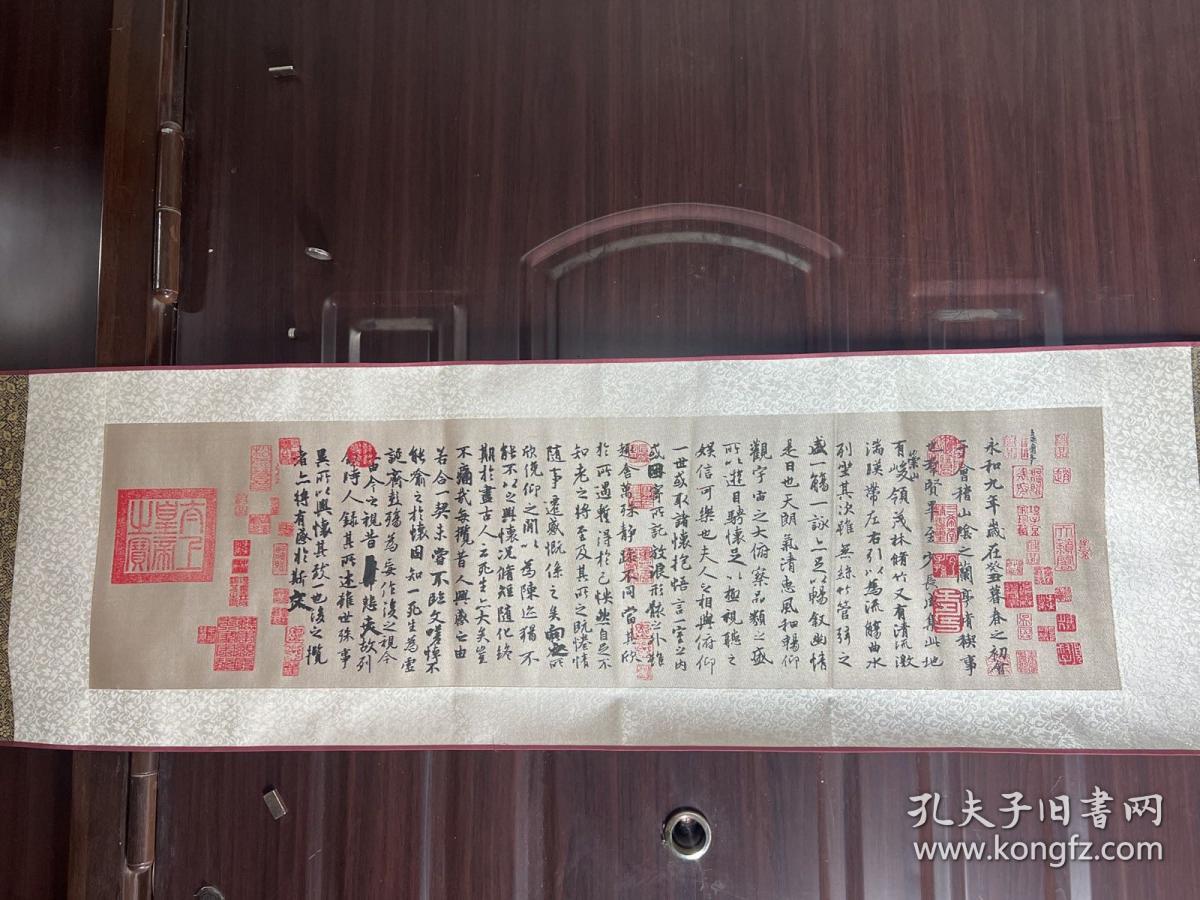 永和九年歲在癸丑暮春之初會
于會稽山陰之蘭亭脩稧事
也羣賢畢至少長咸集此地
有峻領茂林脩竹又有清流激
崇山
湍暎帶左右引以為流觴曲水
列坐其次雖無絲竹管弦之
盛一觴一詠亦足以暢叙幽情
是日也天朗氣清惠風和暢仰
觀宇宙之大俯察品類之盛
所以遊目騁懷足以極視聽之
娛信可樂也夫人之相與俯仰
一世或取諸懷抱悟言一室之內
或因寄所託放浪形骸之外雖
趣舍萬殊靜躁不同當其欣
於所遇暫得於己怏然自足不
知老之將至及其所之既惓情
隨事遷感慨係之矣向之所
欣俛仰之間以為陳迹猶不
能不以之興懷況脩短隨化終
期於盡古人云死生亦大矣豈
不痛哉每攬昔人興感之由
若合一契未嘗不臨文嗟悼不
能喻之於懷固知一死生為虛
誕齊彭殤為妄作後之視今
由今之視昔悲夫故列
敘時人錄其所述雖世殊事
異所以興懷其致一也後之攬
者亦將有感於斯文
太上皇帝之寶
孔夫子旧書网
www.kongfz.com